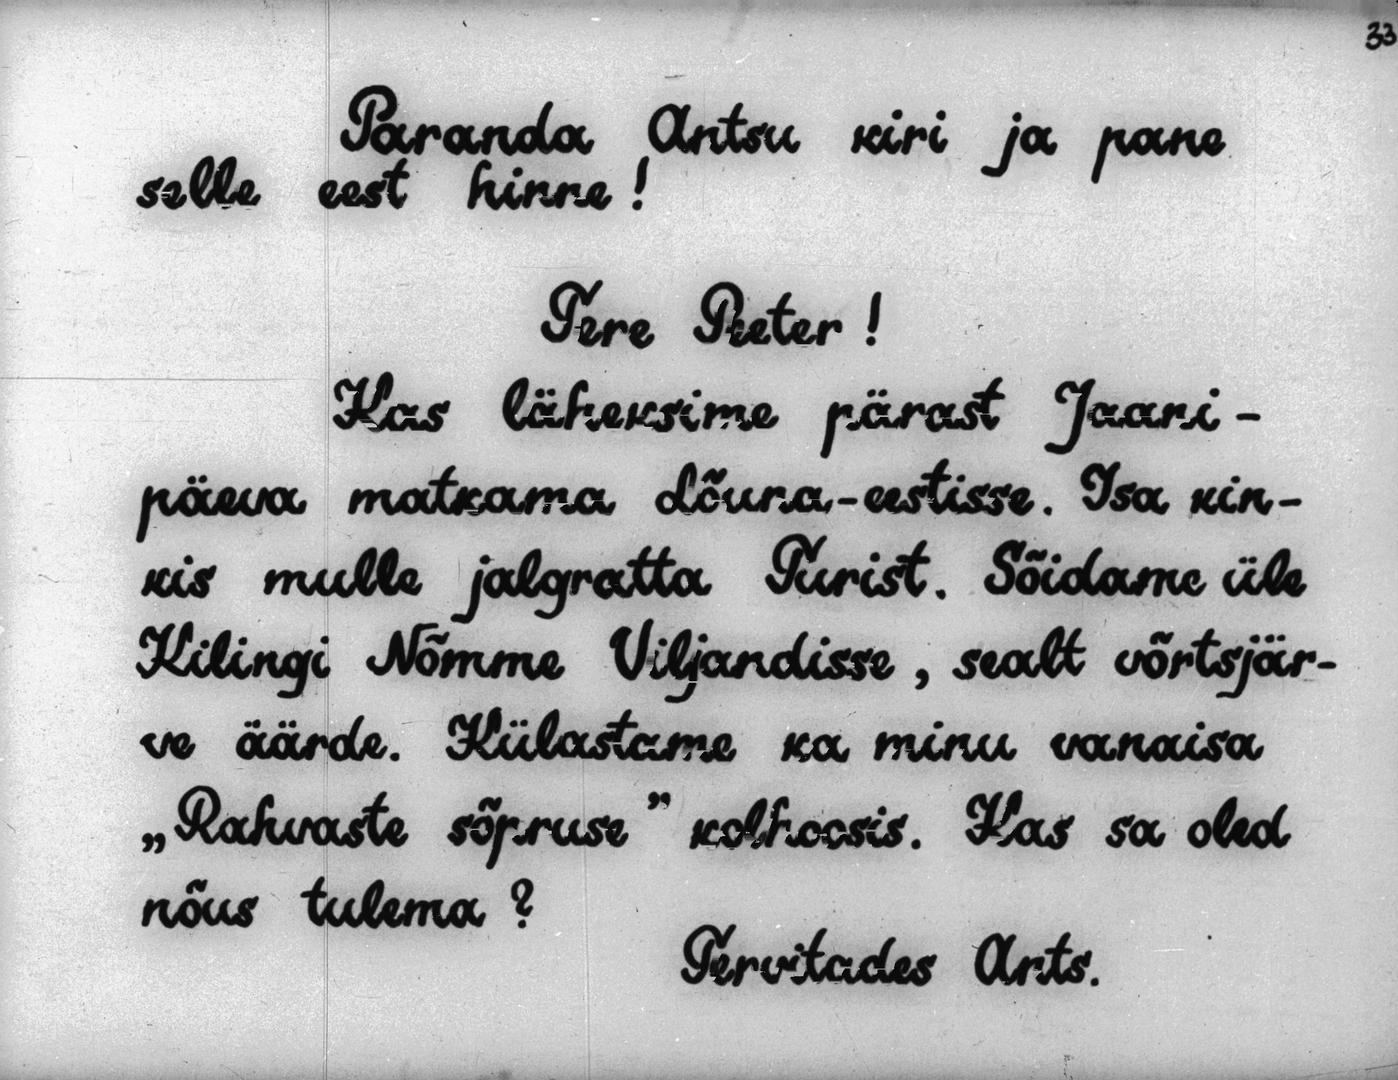 33
Paranda Antsu kiri ja pane
selle eest hinne!
Tere Peeter!
Kas läheksime pärast Jaani-
päeva matkama Lõuna-eestisse. Isa kin-
kis mulle jalgratta Turist. Sõidame üle
Kilingi Nõmme Viljandisse, sealt võrtsjär-
ve äärde. Külastame ka minu vanaisa
„Rahvaste sõpruse" kolhoosis. Kas sa oled
nõus tulema?
Tervitades Ants.